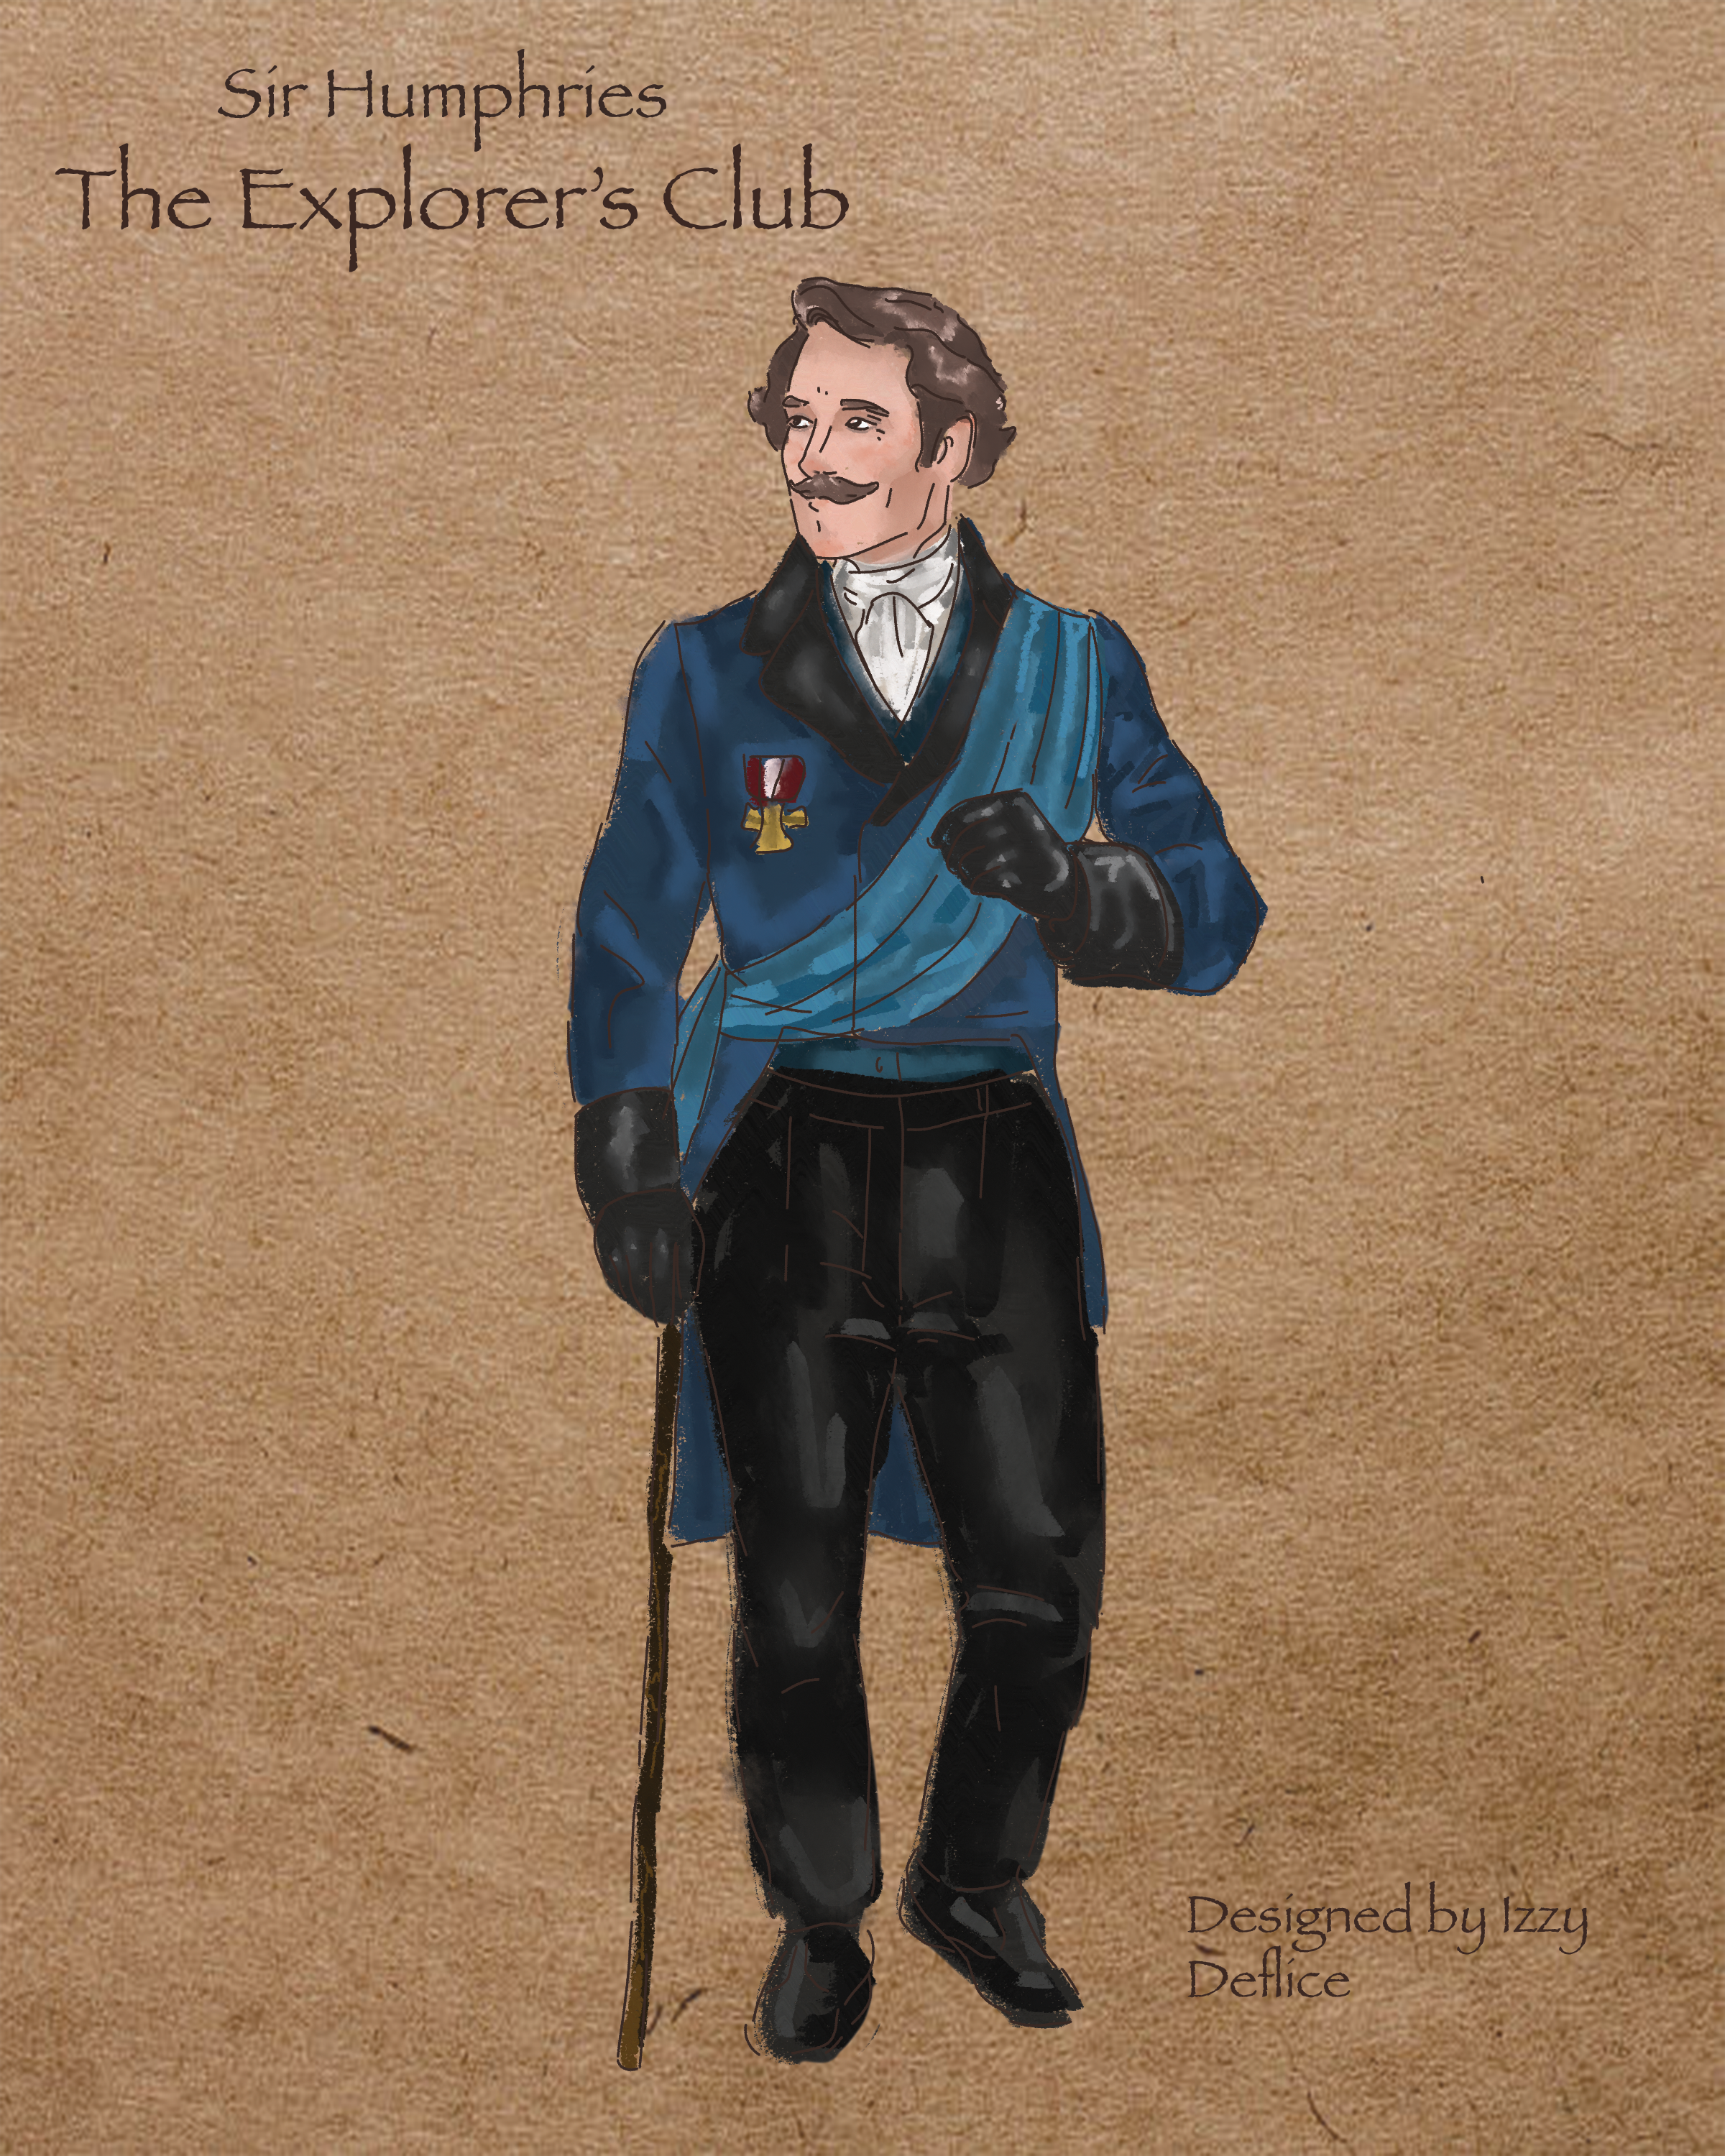 Sir Humphries
The Explorer's Club
Designed by Izzy
Deflice